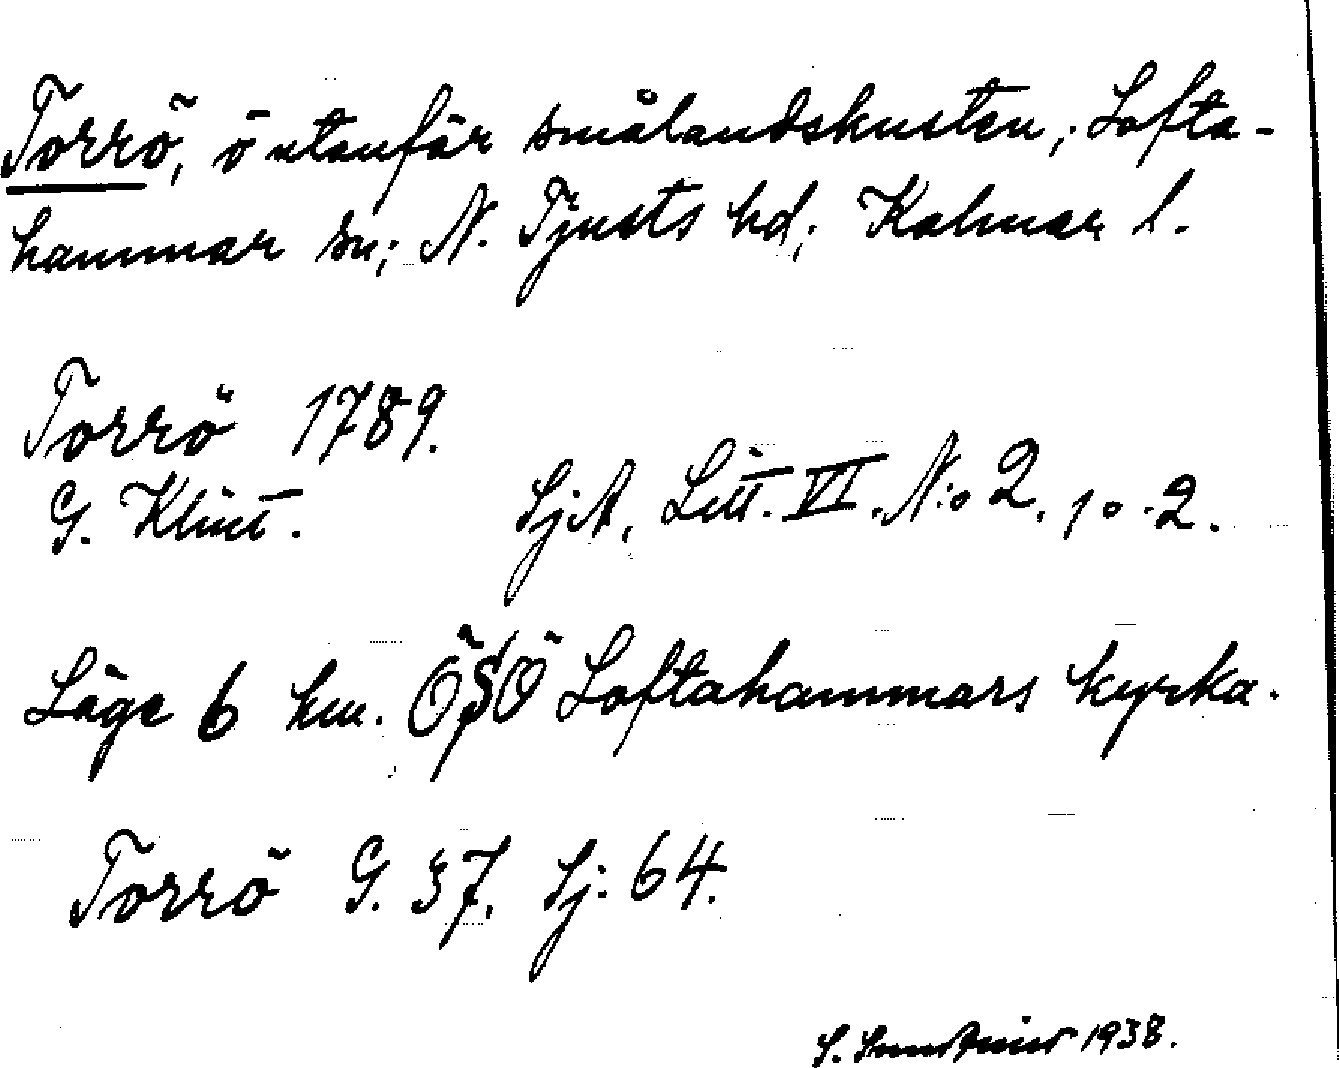 Torrö, ö utanför smålandskusten; Lofta-
hammar sn; N. Tjusts hd; Kalmar l.
Torrö 1789.
G. Klint. SjA, Litt. VI. N:o 2. 10.2.
Läge 6 km. ÖSÖ Loftahammars kyrka.
Torrö G. 37. Sj: 64.
S. 1938.